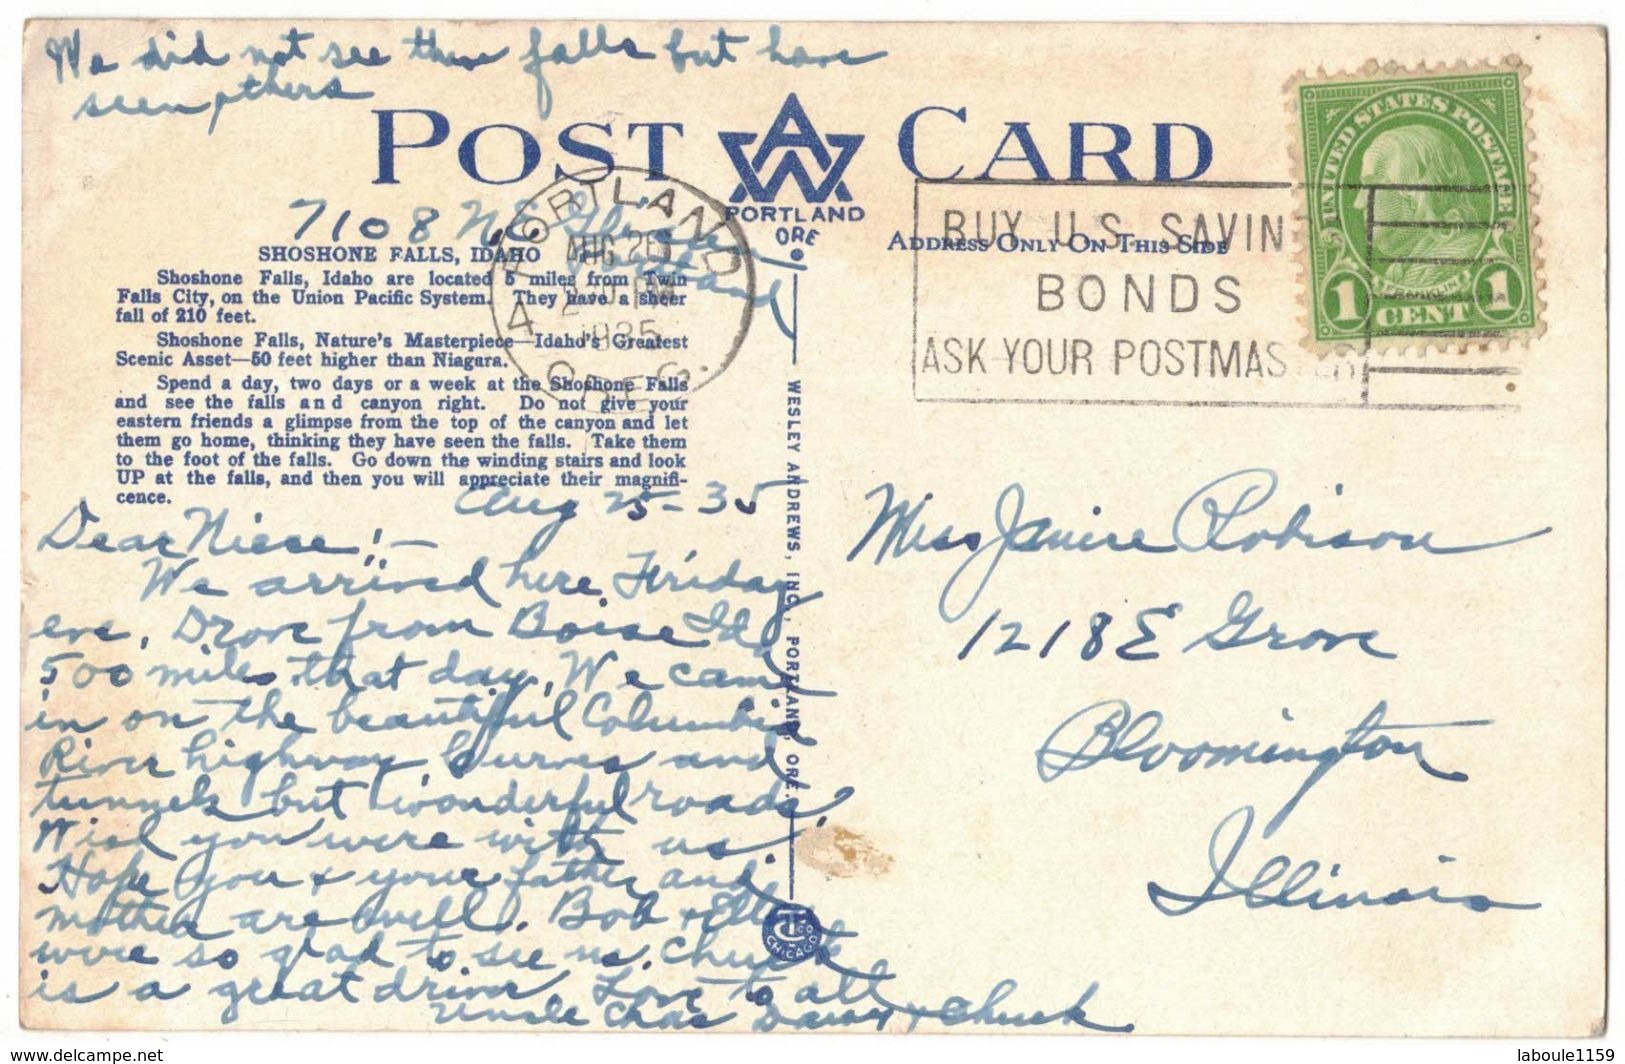 We did not see these falls but have
seen others
POST CARD
AWA
PORTLAND
ORE
7108 N.E.
Portland
SHOSHONE FALLS, IDAHO
Shoshone Falls, Idaho are located 5 miles from Twin
Falls City, on the Union Pacific System. They have a sheer
fall of 210 feet.
Shoshone Falls, Nature's Masterpiece—Idaho's Greatest
Scenic Asset—50 feet higher than Niagara.
Spend a day, two days or a week at the Shoshone Falls
and see the falls and canyon right. Do not give your
eastern friends a glimpse from the top of the canyon and let
them go home, thinking they have seen the falls. Take them
to the foot of the falls. Go down the winding stairs and look
UP at the falls, and then you will appreciate their magnifi-
cence.
PORTLAND
AUG 26
1935
4
OREG.
ADDRESS ONLY ON THIS SIDE
BUY U.S. SAVIN
BONDS
ASK YOUR POSTMASTER
UNITED STATES POSTAGE
FRANKLIN
1 CENT 1
Aug 25-35
Dear Niece!-
We arrived here Friday
eve. Drove from Boise Ida
500 miles that day. We came
in on the beautiful Columbia
River highway curves and
tunnels but wonderful roads.
Wish you were with us.
Hope you & your father and
mother are well. Bob &
were so glad to see us. Chuck
is a great driver. Love to all
Uncle Chas & Chuck
WESLEY ANDREWS, INC., PORTLAND, ORE.
CT CO.
CHICAGO
Miss Janice Robison
1218 E Grove
Bloomington
Illinois
www.delcampe.net
laboule1159